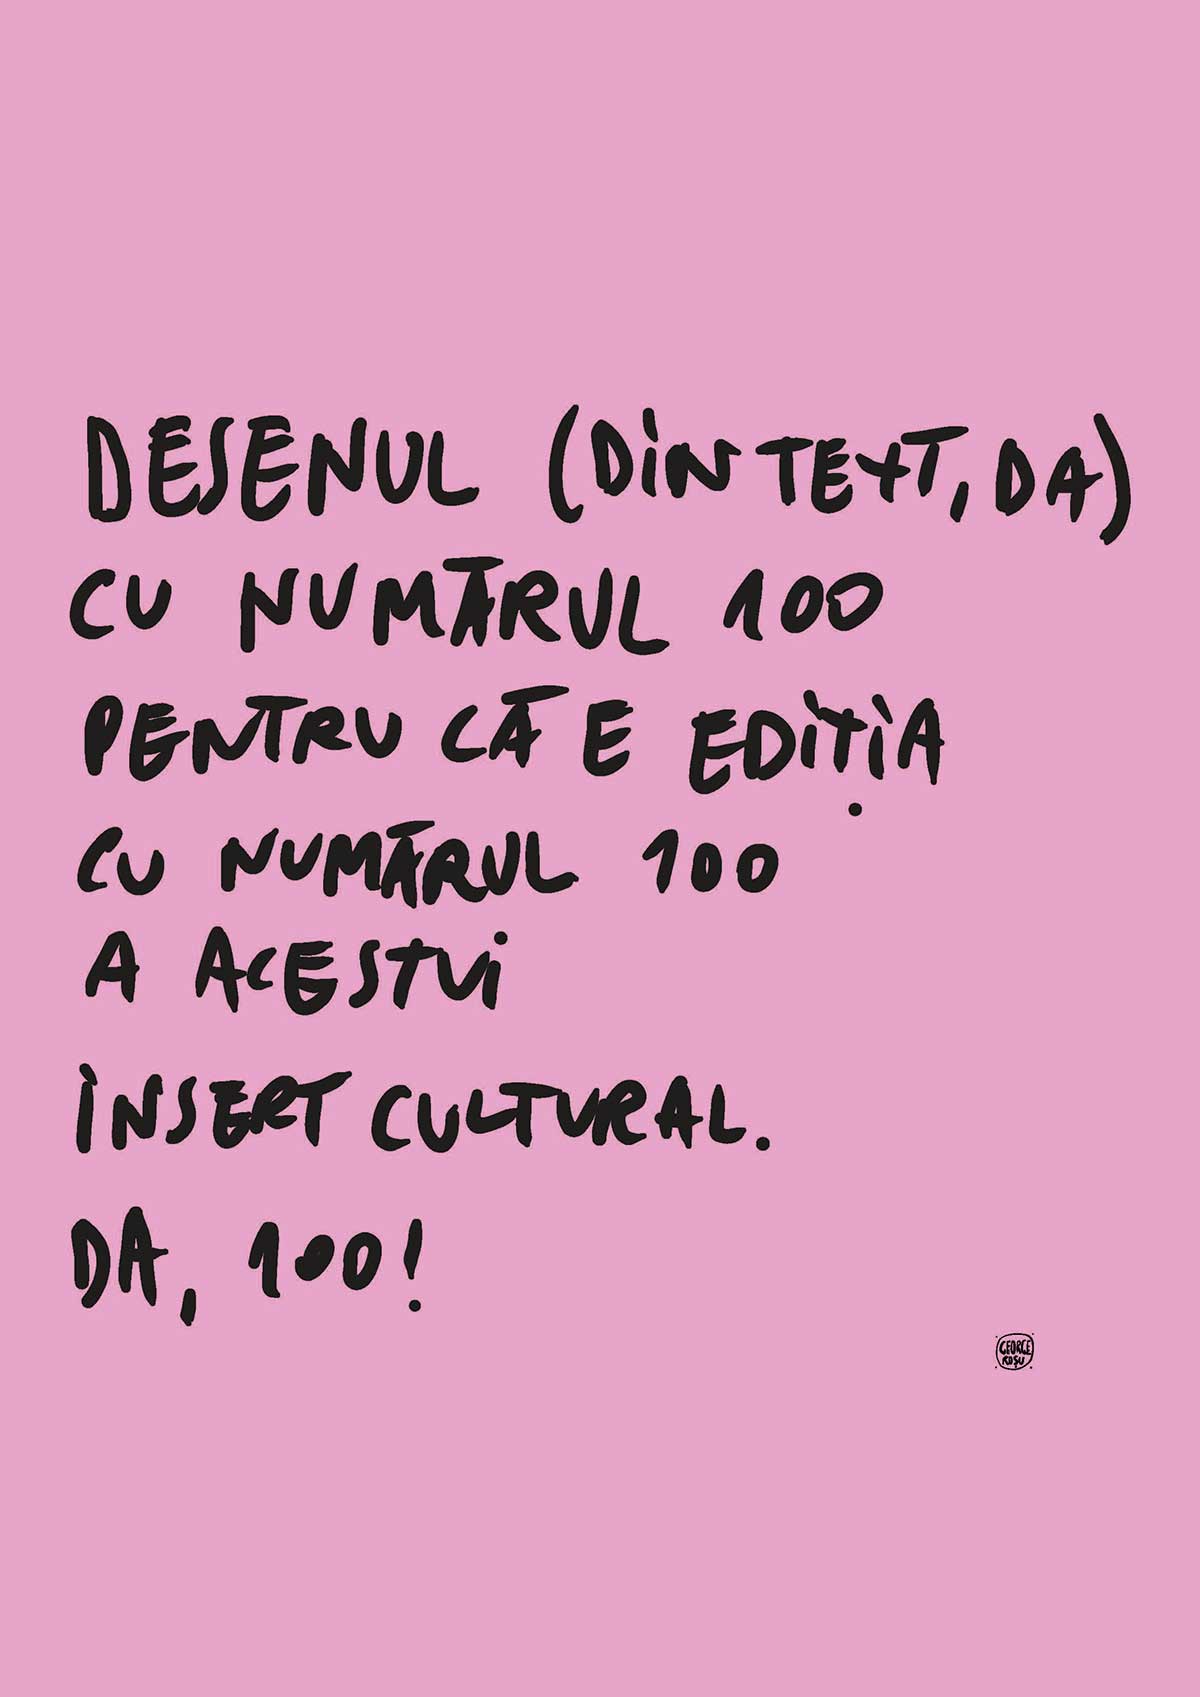 DESENUL (DIN TEXT, DA)
CU NUMĂRUL 100
PENTRU CĂ E EDIȚIA
CU NUMĂRUL 100
A ACESTUI
INSERT CULTURAL.
DA, 100!
GEORGE
ROȘU